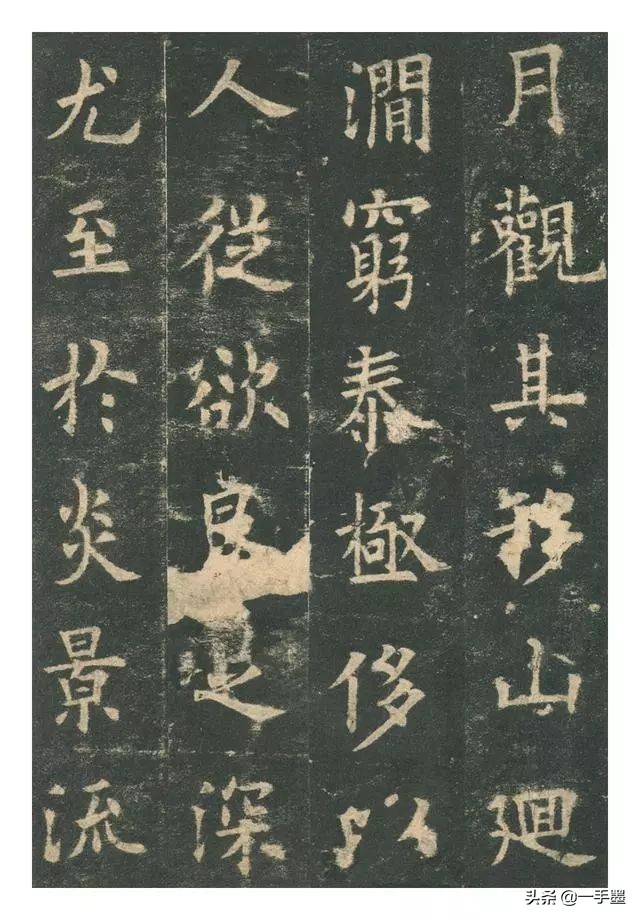 月觀其移山廻
澗窮泰極侈以
人從欲良足深
尤至於炎景流
头条 @一手墨